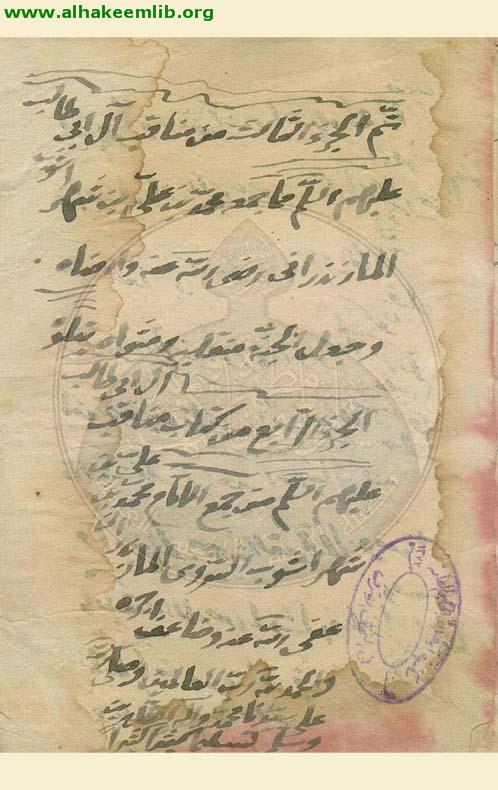 www.alhakeemlib.org
تم الجزء الثالث من مناقب آل ابي طالب
عليهم السلم مما جمعه محمد بن علي بن شهراشوب
المازندراني رضي الله عنه وارضاه
وجعل الجنة منقلبه ومثواه يتلوه
الجزء الرابع من كتاب مناقب آل ابي طالب
عليهم السلم من جمع الامام محمد بن علي بن
شهراشوب السروي المازندراني
عفى الله عنه وضاعف اجره
والحمد لله رب العالمين وصلى
على سيدنا محمد وآله الطاهرين
وسلم تسليما كثيرا كثيرا